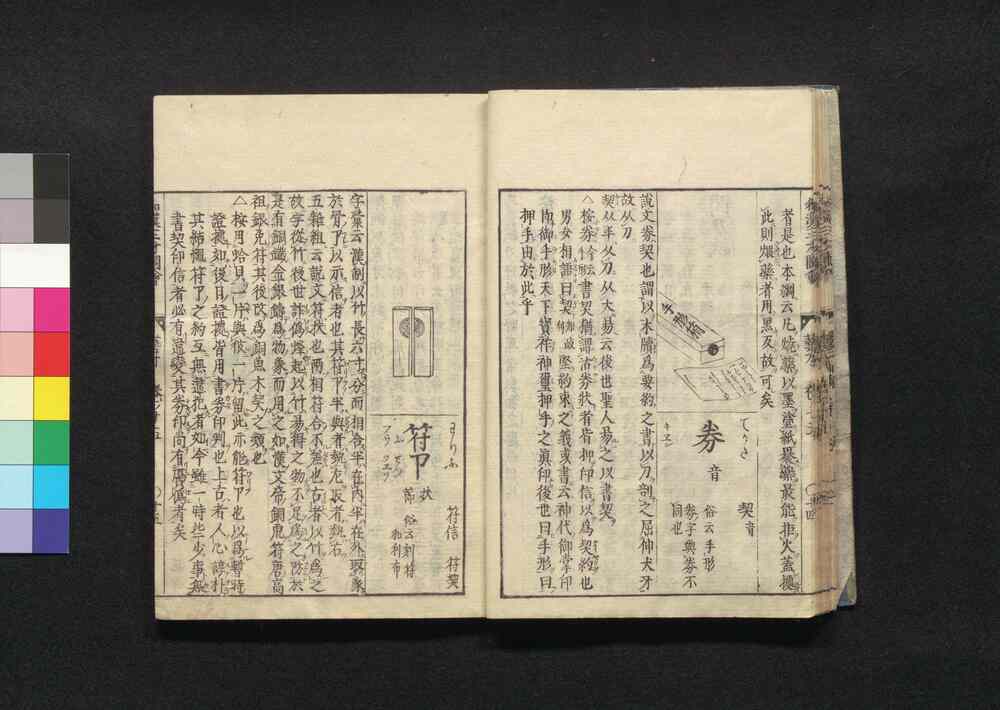 者是也本綱云凡燒藥以墨塗紙裹藥最能拒火蓋據
此則爛藥者用黑及故可矣
てがた
契音
券
音
キエン
俗云手形
券字與劵不
同也
手形箱
說文券契也謂以木牘為要約之書以刀剖之屈伸犬牙
故从刀
契从丰从刀从大易云後世聖人易之以書契
△按券 書契 券狀者皆押印信以為契約也
男女相語曰契 堅約束之義或書云神代御掌印
向御手形天下寶祚神璽押手之眞印後世曰手形曰
押手由於此乎
わりふ
符信 符契
符卪
扶節
俗云割符
和利布
フウ ツエツ
字彙云漢制以竹長六寸分而相合半在內半在外取象
於骨卪以示信者也其符卪半與者執左取者執右
五雜組云說文符扶也兩相符合不差也古者以竹為之
故字從竹後世詐偽烽起以竹易得之物不足為之防於
是有銅鐵金銀鑄為物象而用之如漢文帝銅虎符唐高
祖銀兎符其後改為銅魚木契之類也
△按用蛤貝一片與彼一片留此亦能符卪也以為暫時
證據如後日證據皆用書券印判也上古者人心諄朴
其怖懼符卪之約互無違犯者如今雖一時些少事無
書契印信者必有違變其券印尚有贗偽者矣